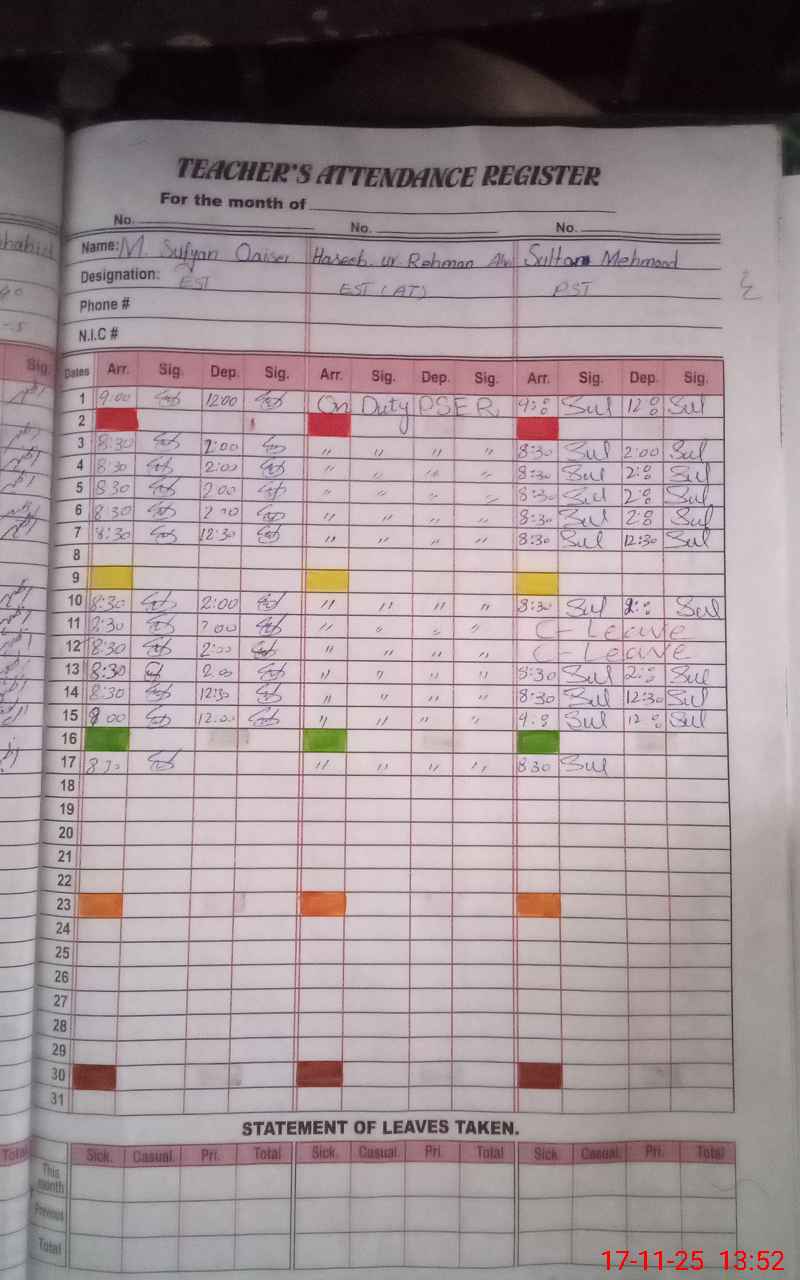 TEACHER'S ATTENDANCE REGISTER
For the month of
No. No. No.
Name: M. Sufyan Qaiser Haseeb ur Rehman Sultan Mehmood
Designation: EST EST (AT) PST
Phone #
N.I.C #
Sig. Dates Arr. Sig. Dep. Sig. Arr. Sig. Dep. Sig. Arr. Sig. Dep. Sig.
1 9:00 1200 On Duty PSER 9:00 Sul 12:00 Sul
2
3 8:30 2:00 " " " " 8:30 Sul 2:00 Sul
4 8:30 2:00 " " " " 8:30 Sul 2:00 Sul
5 8 30 2 00 " " " " 8:30 Sul 2:00 Sul
6 8:30 2 00 " " " " 8:30 Sul 2:00 Sul
7 8:30 12:30 " " " " 8:30 Sul 12:30 Sul
8
9
10 8:30 2:00 " " " " 8:30 Sul 2:00 Sul
11 8:30 2 00 " " " " C-Leave
12 8:30 2:00 " " " " C-Leave
13 8:30 2.00 " " " " 8:30 Sul 2:00 Sul
14 8:30 12:30 " " " " 8:30 Sul 12:30 Sul
15 9 00 12:00 " " " " 9:00 Sul 12:00 Sul
16
17 8 30 " " " " 8 30 Sul
18
19
20
21
22
23
24
25
26
27
28
29
30
31
STATEMENT OF LEAVES TAKEN.
Total Sick. Casual. Pri. Total Sick. Casual. Pri. Total Sick. Casual. Pri. Total
This month
Previous
Total
17-11-25 13:52